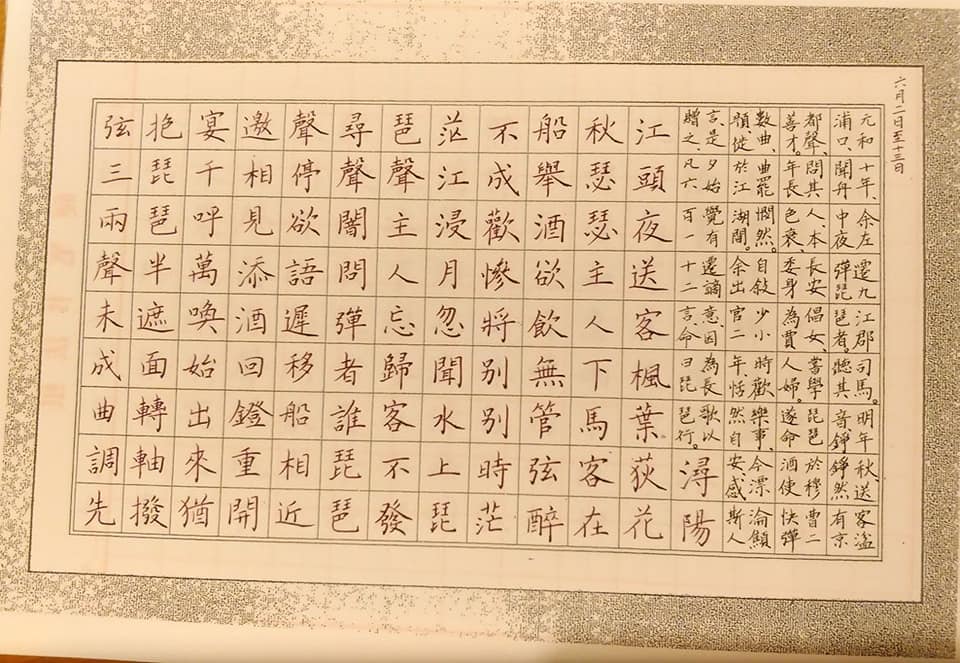 六月二日至十三日
元和十年、余左遷九江郡司馬。明年秋、送客湓
浦口、聞舟中夜彈琵琶者。聽其音、錚錚然有京
都聲、問其人、本長安倡女、嘗學琵琶於穆曹二
善才。年長色衰、委身為賈人婦。遂命酒使快彈
數曲、曲罷憫然。自敘少小時歡樂事、今漂淪顦
顇、徙於江湖間。余出官二年、恬然自安、感斯人
言、是夕始覺有遷謫意、因為長歌以
贈之、凡六百一十二言、命曰琵琶行。
潯陽
江頭夜送客楓葉荻花
秋瑟瑟主人下馬客在
船舉酒欲飲無管弦醉
不成歡慘將別別時茫
茫江浸月忽聞水上琵
琶聲主人忘歸客不發
尋聲闇問彈者誰琵琶
聲停欲語遲移船相近
邀相見添酒回鐙重開
宴千呼萬喚始出來猶
抱琵琶半遮面轉軸撥
弦三兩聲未成曲調先